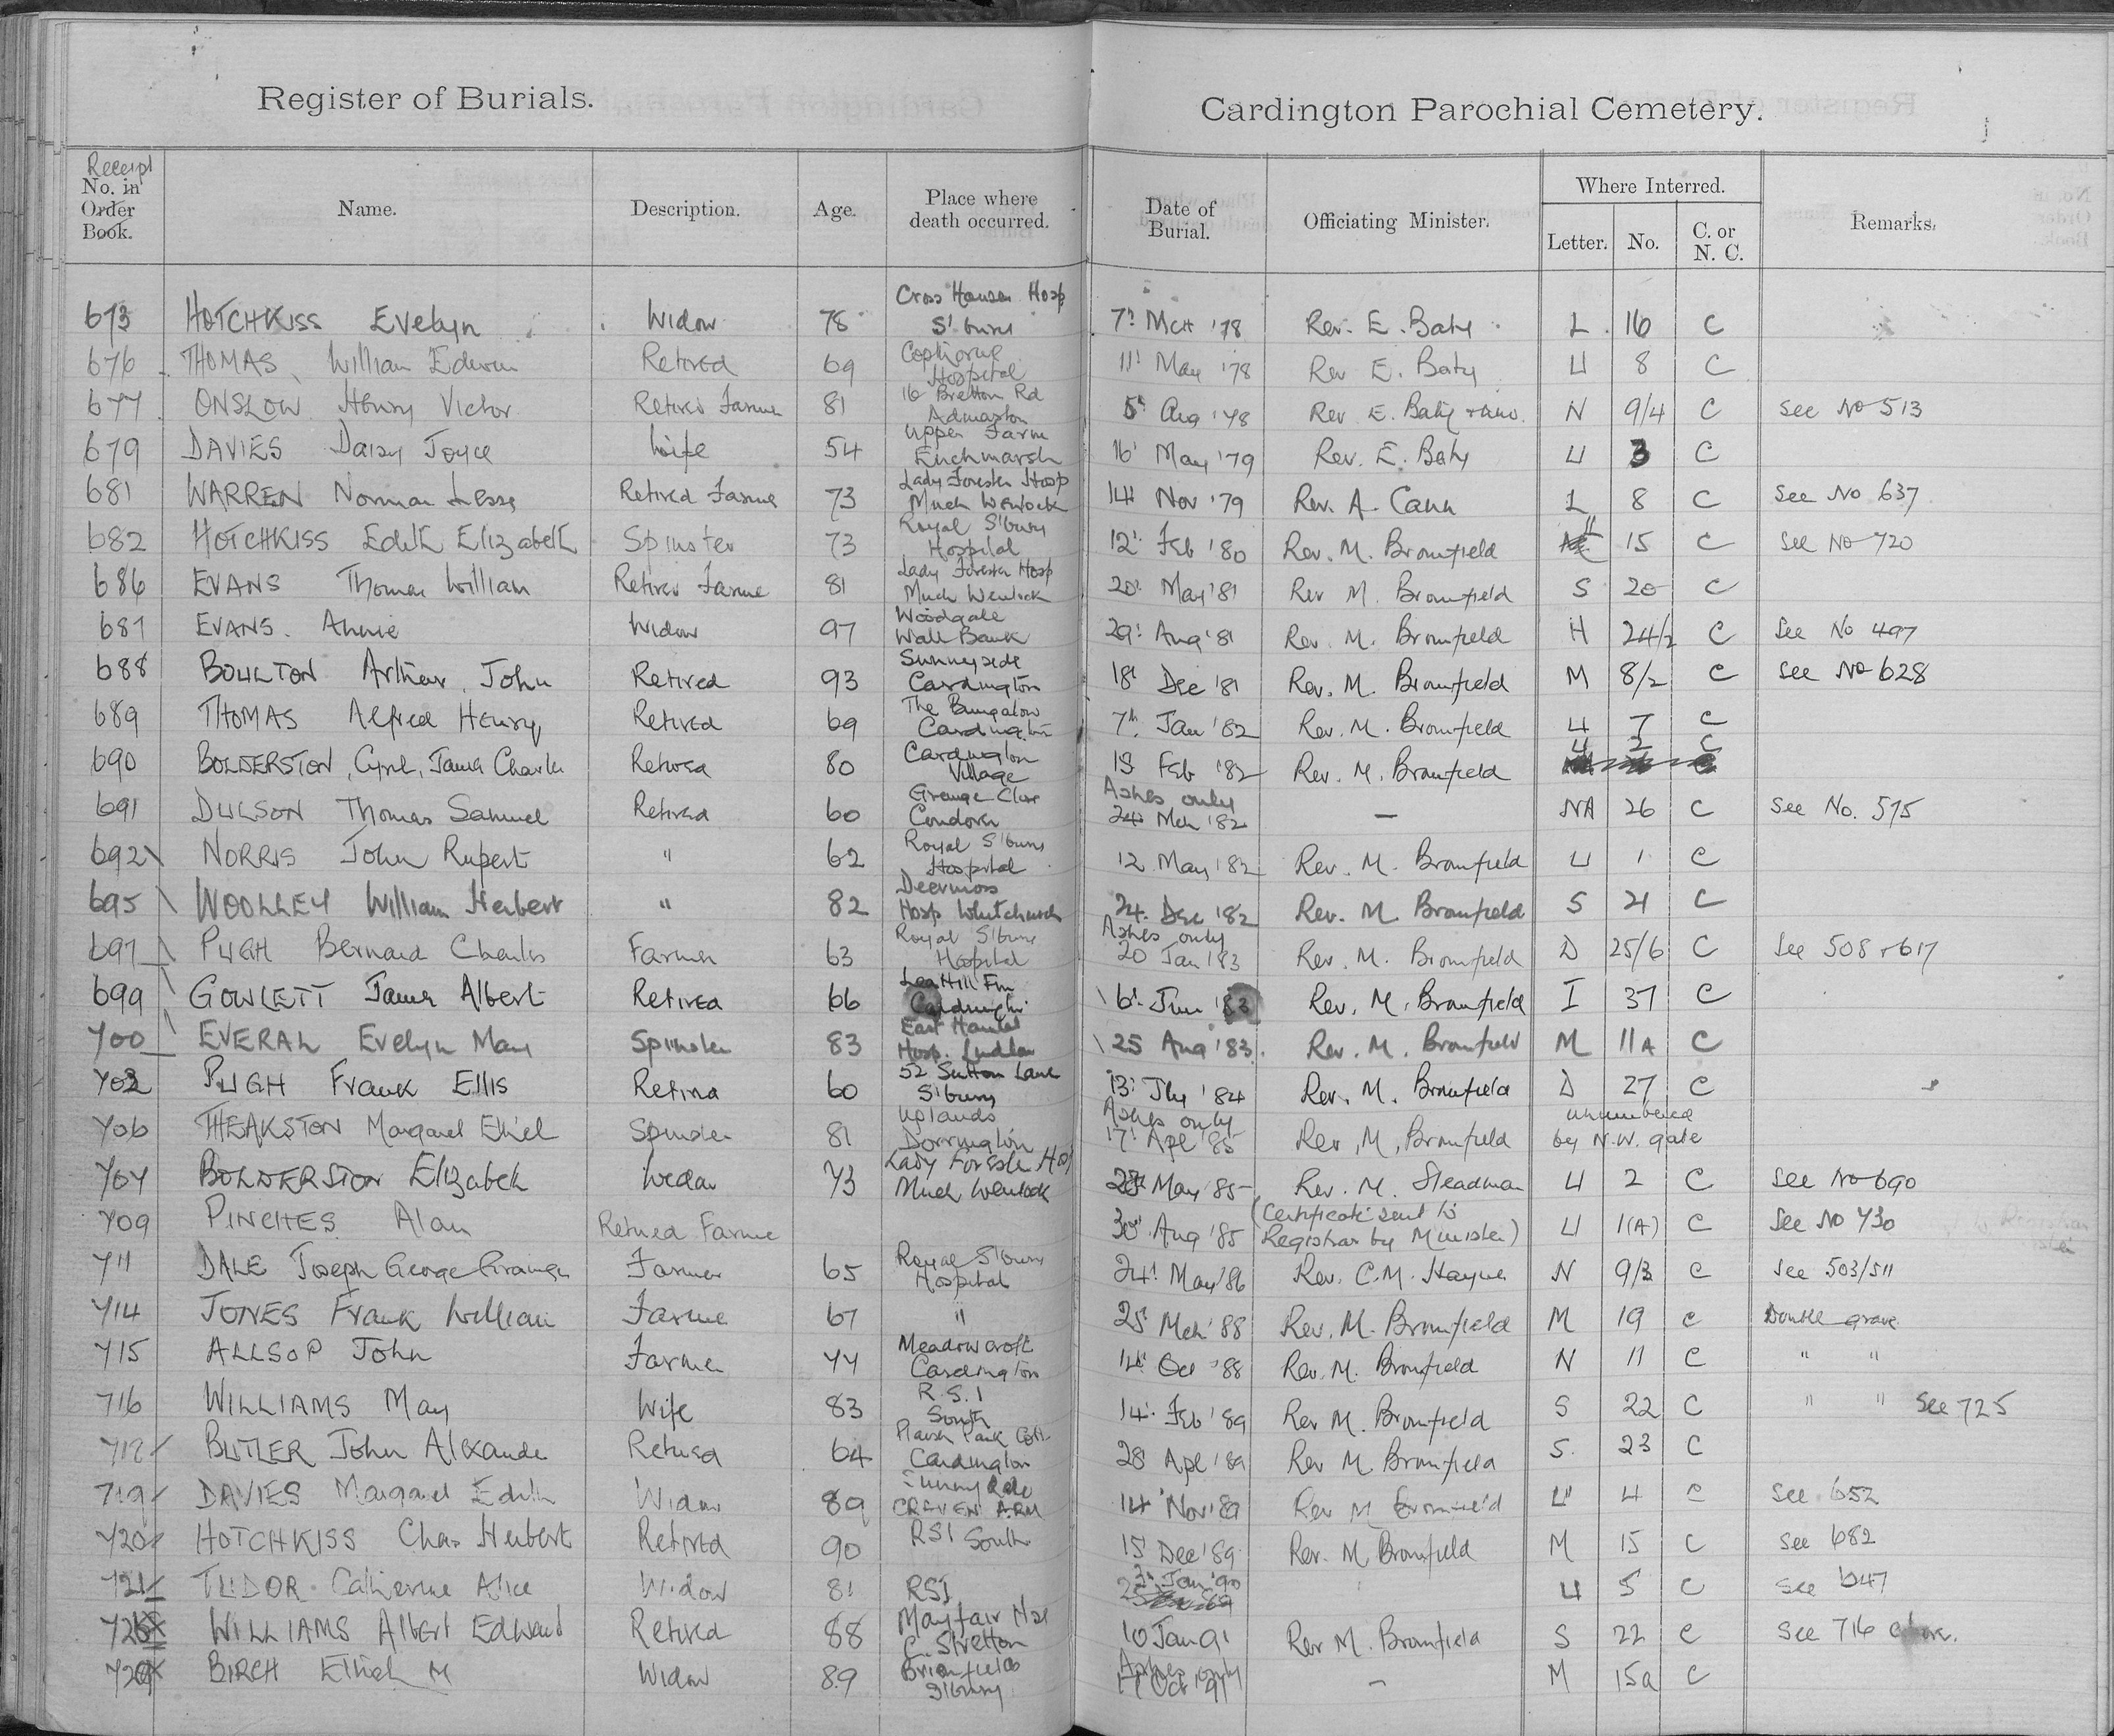 Register of Burials.
Cardington Parochial Cemetery.
Receipt
No. in Order Book.
Name.
Description.
Age.
Place where death occurred.
Date of Burial.
Officiating Minister.
Where Interred.
Letter.
No.
C. or N. C.
Remarks.
673 HOTCHKISS Evelyn Widow 78 Cross Houses Hosp S'bury 7th Mch '78 Rev. E. Baty L 16 C
676 THOMAS William Edwin Retired 69 Copthorne Hospital 11th May '78 Rev E. Baty U 8 C
677 ONSLOW Henry Victor Retired Farmer 81 16 Bretton Rd Admaston 5th Aug '78 Rev E. Baty N 9/4 C See No 513
679 DAVIES Daisy Joyce Wife 54 Upper Farm Enchmarsh 16th May '79 Rev. E. Baty U 3 C
681 WARREN Norman Retired Farmer 73 Lady Forester Hosp Much Wenlock 14th Nov '79 Rev. A. Cann L 8 C See No 637
682 HOTCHKISS Edith Elizabeth Spinster 73 Royal S'bury Hospital 12th Feb '80 Rev. M. Bromfield 15 C See No 720
686 EVANS Thomas William Retired Farmer 81 Lady Forester Hosp Much Wenlock 20th May '81 Rev M. Bromfield S 20 C
687 EVANS. Annie Widow 97 Woodgate Wall Bank 29th Aug '81 Rev. M. Bromfield H 24/2 C See No 497
688 BOULTON Arthur John Retired 93 Sunnyside Cardington 18th Dec '81 Rev. M. Bromfield M 8/2 C See No 628
689 THOMAS Alfred Henry Retired 69 The Bungalow Cardington 7th Jan '82 Rev. M. Bromfield U 7 C
690 BOLDERSTON, Cyril, James Charles Retired 80 Cardington Village Feb '82 Rev. M. Bromfield U 2 C
691 DULSON Thomas Samuel Retired 60 Grange Close Condover Ashes only 24th Mch '82 — NA 26 C See No. 575
692 NORRIS John Rupert " 62 Royal S'bury Hospital 12 May '82 Rev. M. Bromfield U 1 C
695 WOOLLEY William Herbert " 82 Deermoss Hosp Whitchurch 24th Dec '82 Rev. M. Bromfield S 21 C
697 PUGH Bernard Charles Farmer 63 Royal S'bury Hospital Ashes only 20 Jan '83 Rev. M. Bromfield D 25/6 C See 508 + 617
699 GOWLETT James Albert Retired 66 Lea Hill Fm Cardington 6th '83 Rev. M. Bromfield I 37 C
700 EVERAL Evelyn May Spinster 83 East Hamlet Hosp. Ludlow 25 Aug '83. Rev. M. Bromfield M 11A C
702 PUGH Frank Ellis Retired 60 52 Sutton Lane S'bury 13th '84 Rev. M. Bromfield D 27 C
706 THEAKSTON Margaret Ethel Spinster 81 Uplands Dorrington Ashes only 17th Apl '85 Rev. M. Bromfield unnumbered by N.W. gate
707 BOLDERSTON Elizabeth Widow 73 Lady Forester Hosp Much Wenlock May '85 Rev. M. Steadman U 2 C See No 690
709 PINCHES Alan Retired Farmer 30th Aug '85 (Certificate sent to Registrar by Minister) U 1(A) C See No 730
711 DALE Joseph George Grainger Farmer 65 Royal S'bury Hospital 24th May '86 Rev. C.M. Hayne N 9/3 C See 503/511
714 JONES Frank William Farmer 67 " 25th Mch '88 Rev. M. Bromfield M 19 C Double grave
715 ALLSOP John Farmer 77 Meadowcroft Cardington 14th Oct '88 Rev. M. Bromfield N 11 C " "
716 WILLIAMS May Wife 83 R.S.I South 14th Feb '89 Rev M. Bromfield S 22 C " " See 725
717 BUTLER John Alexander Retired 64 Plaish Park Cott. Cardington 28 Apl '89 Rev M. Bromfield S. 23 C
719 DAVIES Margaret Edith Widow 89 CRAVEN ARM 14th Nov '89 Rev M Bromfield U 4 C See 652
720 HOTCHKISS Chas Herbert Retired 90 RSI South 15th Dec '89 Rev. M. Bromfield M 15 C See 682
721 TUDOR Catherine Alice Widow 81 RSI Jan '90 U 5 C See 647
WILLIAMS Albert Edward Retired 88 Mayfair Hse C. Stretton 10 Jan 91 Rev M. Bromfield S 22 C See 716 above.
BIRCH M Widow 89 S'bury Ashes only Oct 91 – M 15a C